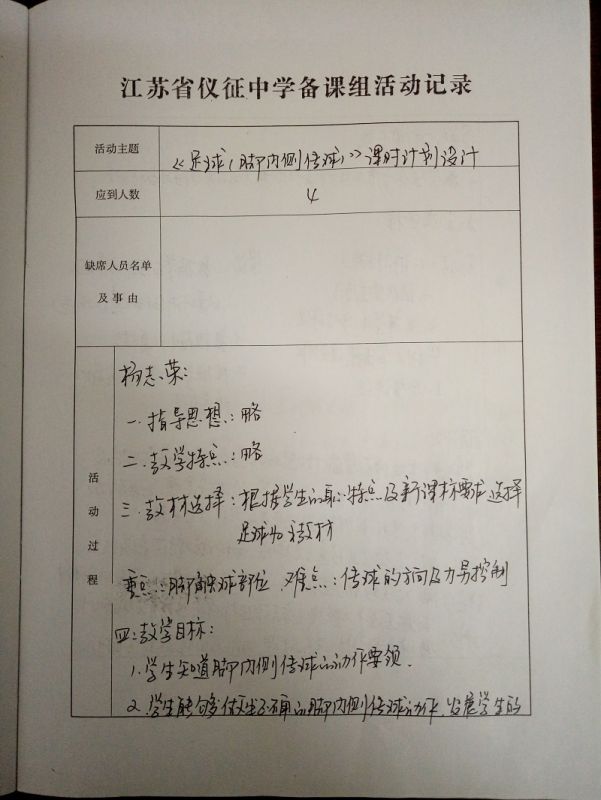 江苏省仪征中学备课组活动记录
活动主题
《足球(脚内侧传球)》课时计划设计
应到人数
4
缺席人员名单
及事由
活动过程
杨志荣:
一.指导思想:略
二.教学特点:略
三.教材选择:根据学生的身心特点及新课标要求选择
足球为教材
重点:脚触球部位 难点:传球的方向及力量控制
四:教学目标:
1.学生知道脚内侧传球的动作要领.
2.学生能够做出正确的脚内侧传球动作.发展学生的